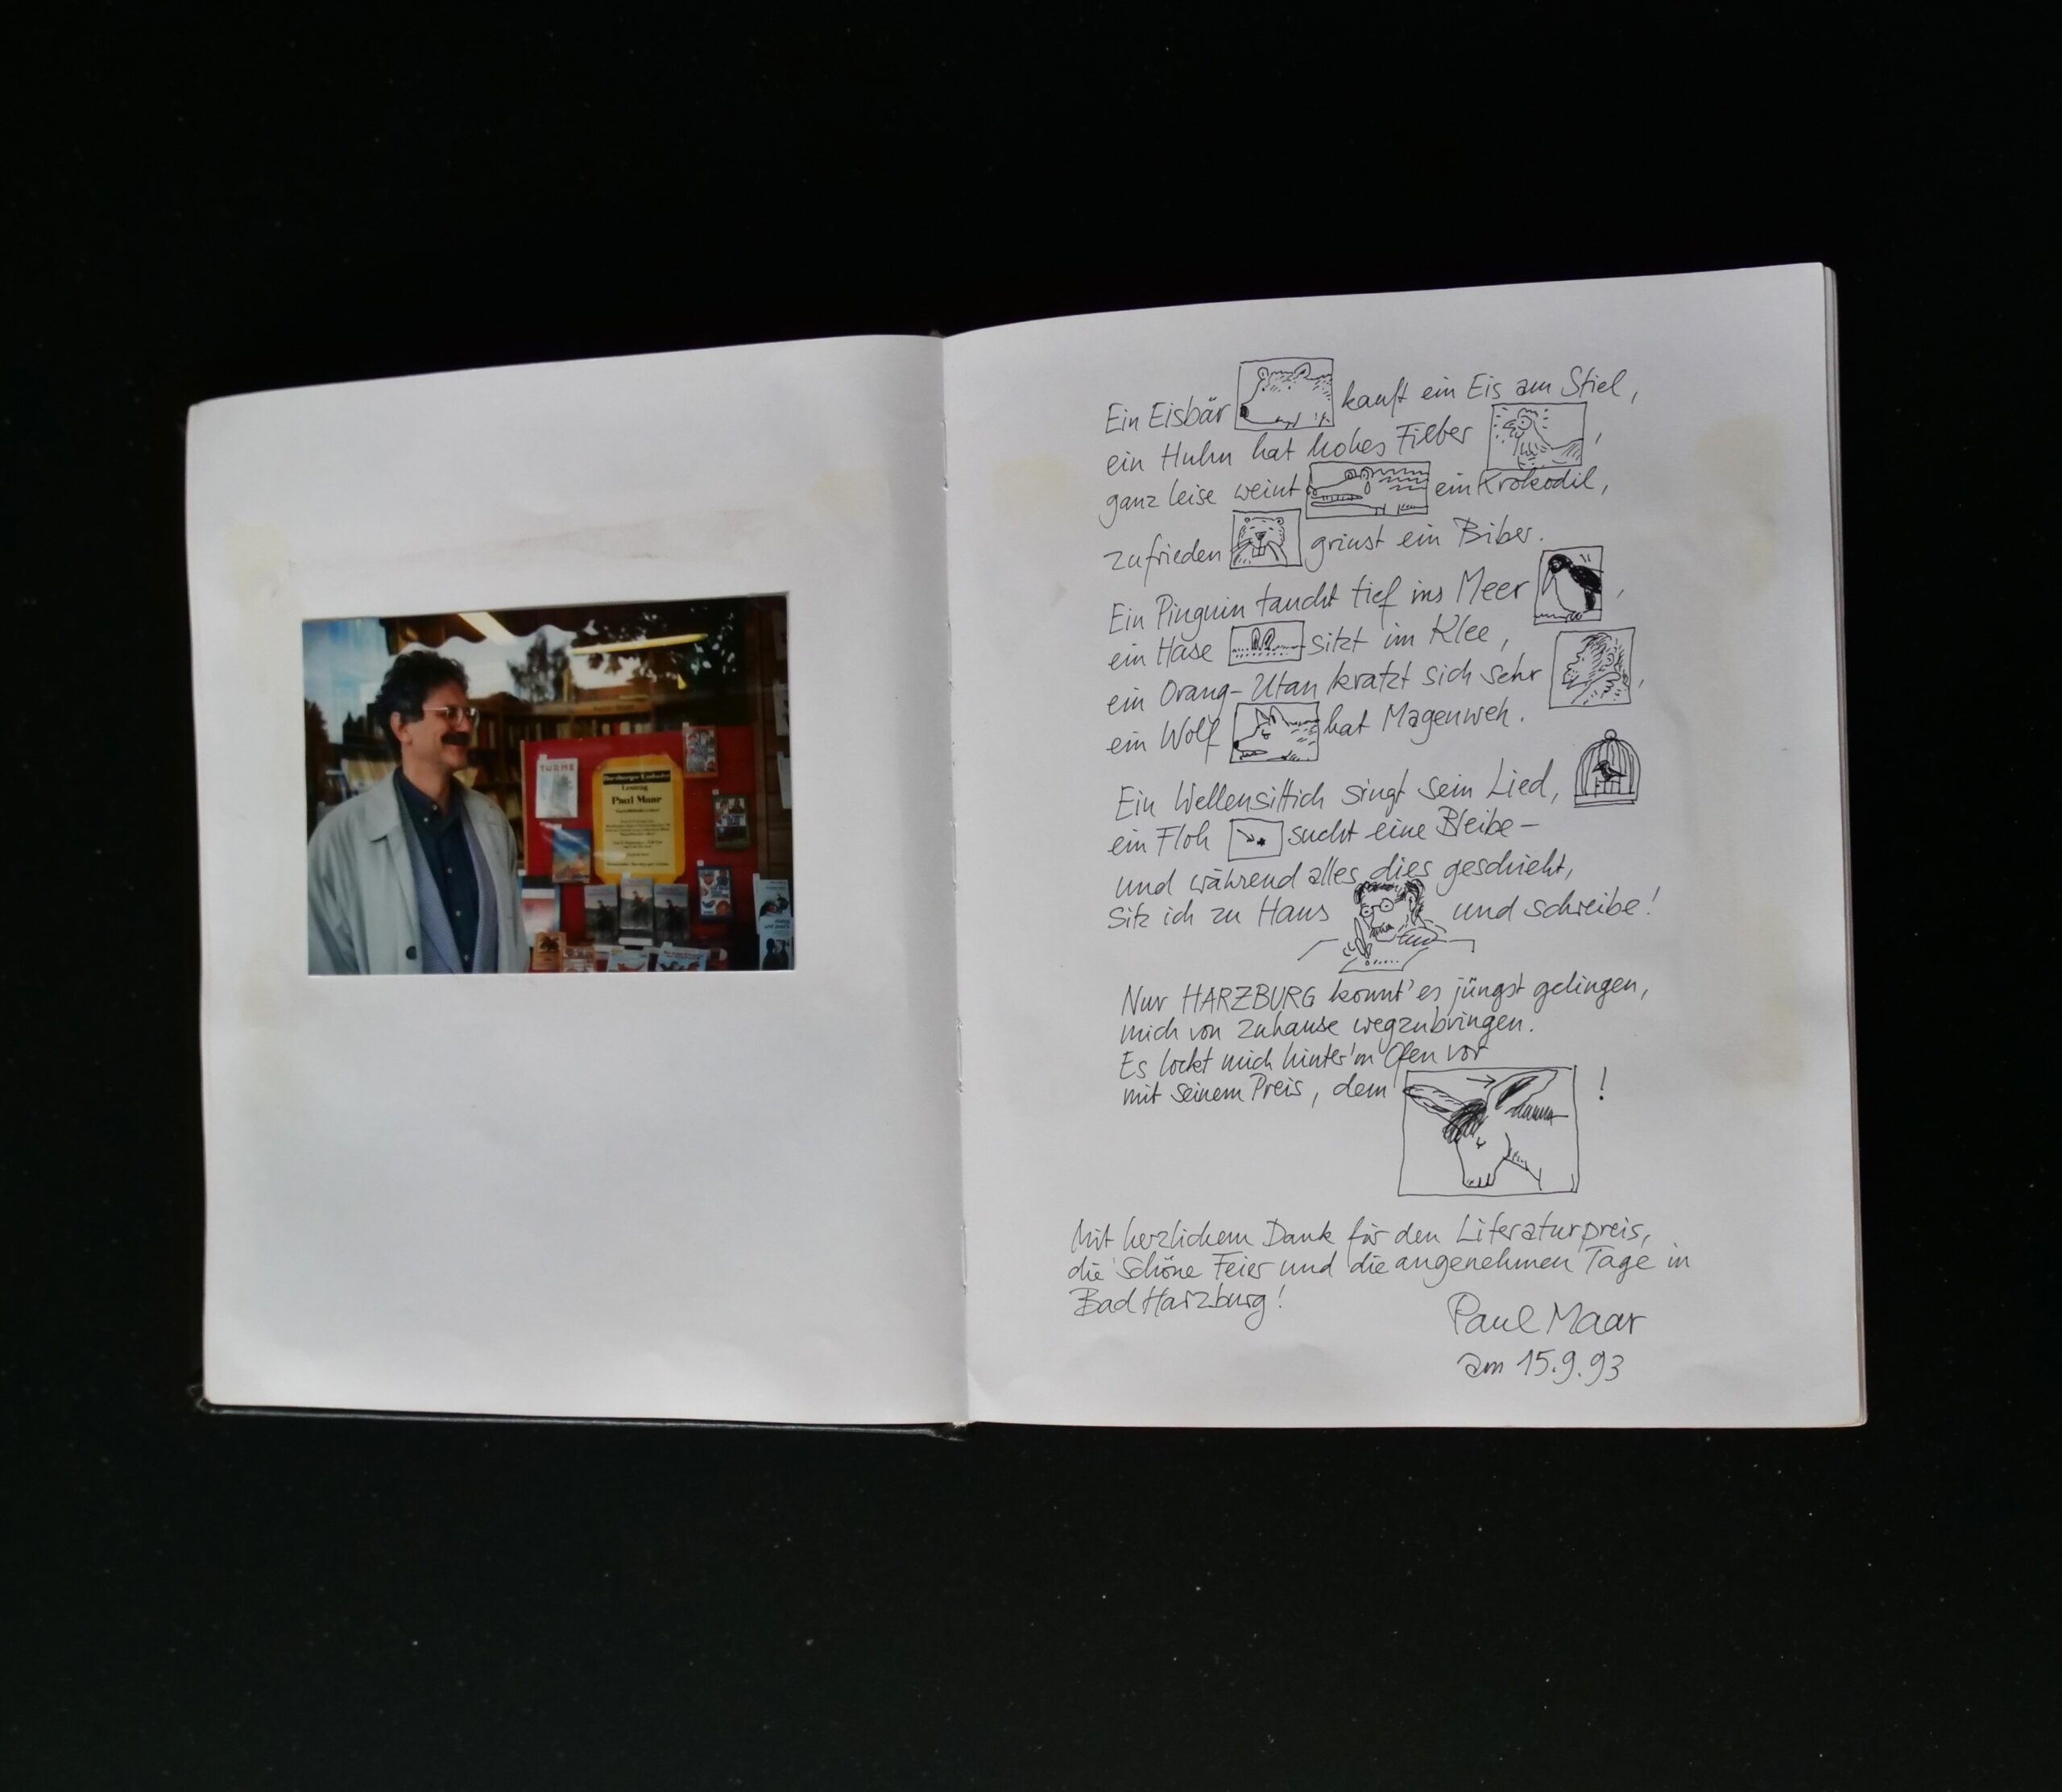 TÜRME
Lesung
Paul Maar
Ein Eisbär kauft ein Eis am Stiel,
ein Huhn hat hohes Fieber,
ganz leise weint ein Krokodil,
zufrieden grinst ein Biber.
Ein Pinguin taucht tief ins Meer,
ein Hase sitzt im Klee,
ein Orang-Utan kratzt sich sehr,
ein Wolf hat Magenweh.
Ein Wellensittich singt sein Lied,
ein Floh sucht eine Bleibe –
und während alles dies geschieht,
Sitz ich zu Haus und schreibe!
Nur HARZBURG konnt' es jüngst gelingen,
mich von Zuhause wegzubringen.
Es lockt mich hinter'm Ofen vor
mit seinem Preis, dem !
Mit herzlichem Dank für den Literaturpreis,
die schöne Feier und die angenehmen Tage in
Bad Harzburg!
Paul Maar
am 15.9.93